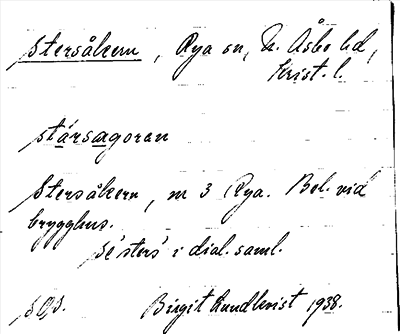 Stersåkern, Rya sn, N. Åsbo hd,
Krist. l.
stársægoran
Stersåkern, m 3 Rya. Bel. vid
brygghus.
se 'sters' i dial. saml.
Birgit Lundkvist 1938.